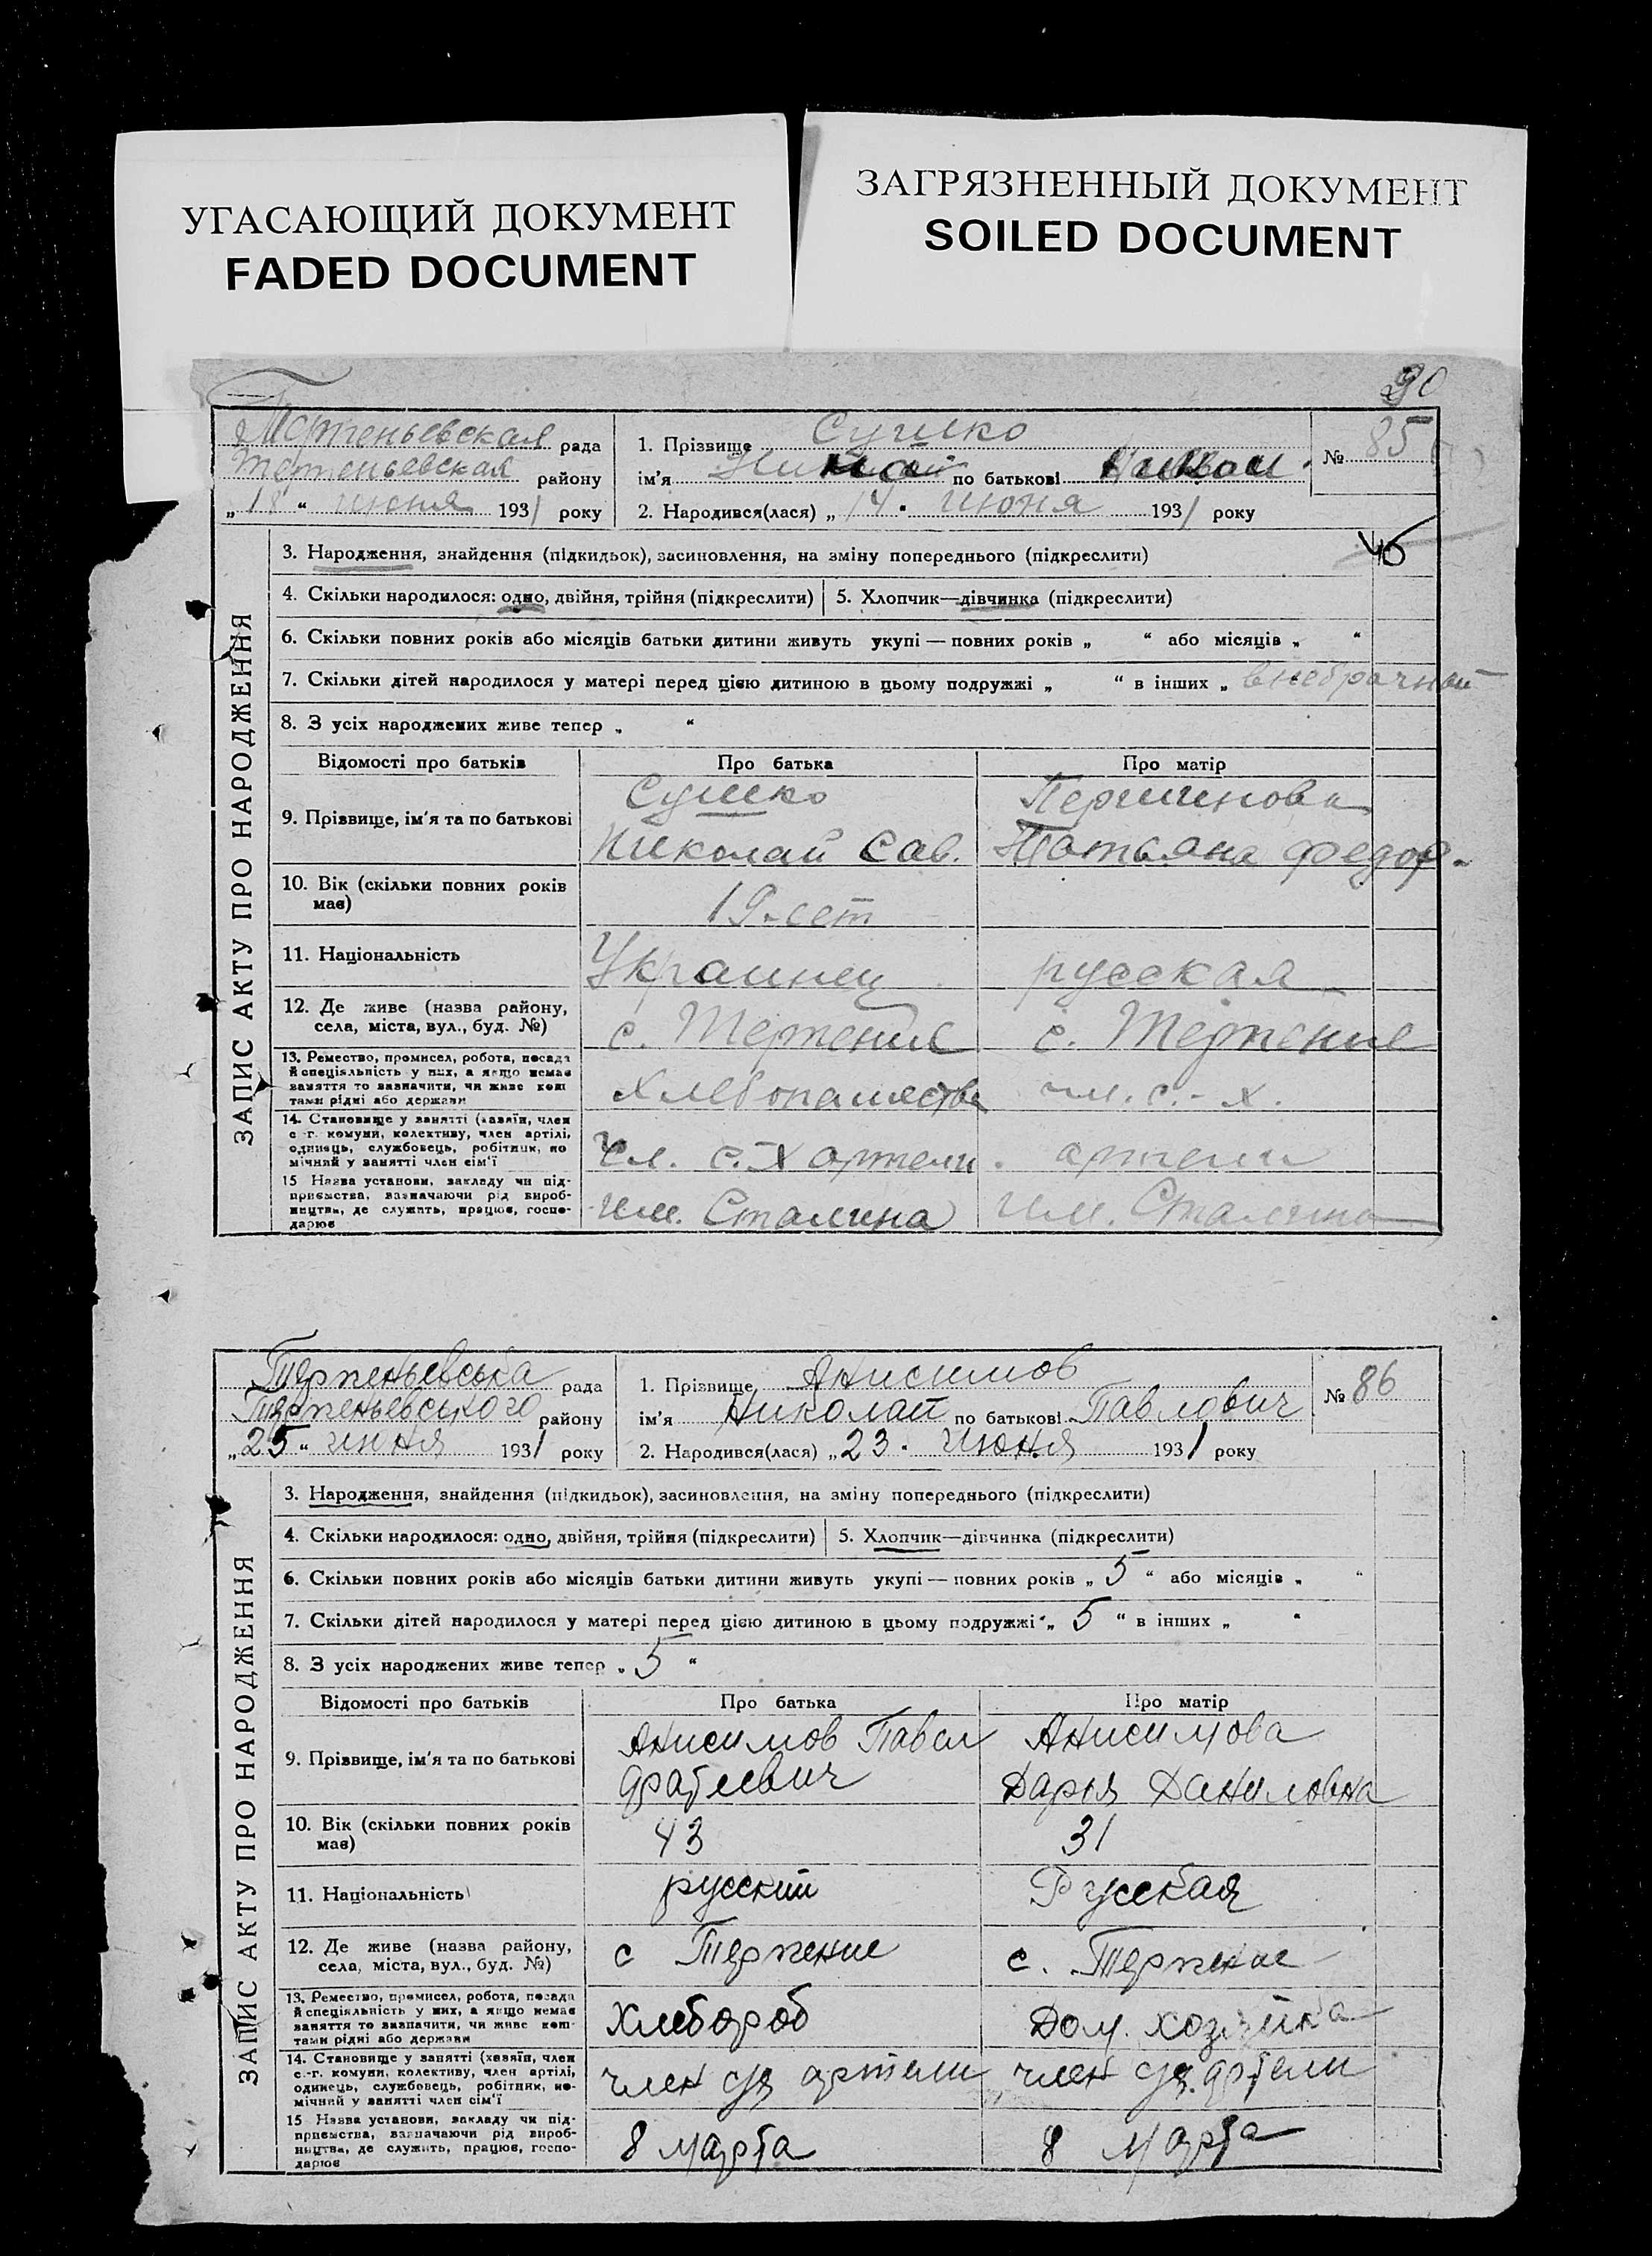 УГАСАЮЩИЙ ДОКУМЕНТ
FADED DOCUMENT
ЗАГРЯЗНЕННЫЙ ДОКУМЕНТ
SOILED DOCUMENT
90
ЗАПИС АКТУ ПРО НАРОДЖЕННЯ
Терпеньевская рада
Терпеньевская району
„18“ июня 1931 року
1. Прізвище Сушко
ім'я по батькові
2. Народився(лася) „14. июня 1931 року
№ 85
3. Народження, знайдення (підкидьок), засиновлення, на зміну попереднього (підкреслити)
4. Скільки народилося: одно, двійня, трійня (підкреслити) 5. Хлопчик—дівчинка (підкреслити)
6. Скільки повних років або місяців батьки дитини живуть укупі — повних років „ “ або місяців „ “
7. Скільки дітей народилося у матері перед цією дитиною в цьому подружжі „ “ в інших „ внебрачный
8. З усіх народжених живе тепер „ “
Відомості про батьків Про батька Про матір
9. Прізвище, ім'я та по батькові Сушко Николай Сав. Татьяна Федор.
10. Вік (скільки повних років має) 19 лет
11. Національність Украинец русская
12. Де живе (назва району, села, міста, вул., буд. №) с. Терпение с. Терпение
13. Ремество, промисел, робота, посада й спеціяльність у них, а якщо немає заняття то зазначити, чи живе коштами рідні або держави Хлебопашество чл. с.-х.
14. Становище у занятті (хазяїн, член с.-г. комуни, колективу, член артілі, одинець, службовець, робітник, помічний у занятті член сім'ї Чл. с.х артели артели
15 Назва установи, закладу чи підприємства, зазначаючи рід виробництва, де служить, працює, господарює им. Сталина им. Сталина
ЗАПИС АКТУ ПРО НАРОДЖЕННЯ
Терпеньевська рада
Терпеньевського району
„25“ июня 1931 року
1. Прізвище Анисимов
ім'я Николай по батькові Павлович
2. Народився(лася) „23. июня 1931 року
№ 86
3. Народження, знайдення (підкидьок), засиновлення, на зміну попереднього (підкреслити)
4. Скільки народилося: одно, двійня, трійня (підкреслити) 5. Хлопчик—дівчинка (підкреслити)
6. Скільки повних років або місяців батьки дитини живуть укупі — повних років „ 5 “ або місяців „ “
7. Скільки дітей народилося у матері перед цією дитиною в цьому подружжі „ 5 “ в інших „ “
8. З усіх народжених живе тепер „ 5 “
Відомості про батьків Про батька Про матір
9. Прізвище, ім'я та по батькові Анисимов Павел Анисимова Дарья Даниловна
10. Вік (скільки повних років має) 43 31
11. Національність русский Русская
12. Де живе (назва району, села, міста, вул., буд. №) с Терпение с. Терпение
13. Ремество, промисел, робота, посада й спеціяльність у них, а якщо немає заняття то зазначити, чи живе коштами рідні або держави Хлебороб Дом. хозяйка
14. Становище у занятті (хазяїн, член с.-г. комуни, колективу, член артілі, одинець, службовець, робітник, помічний у занятті член сім'ї член с/х артели член с/х. артели
15 Назва установи, закладу чи підприємства, зазначаючи рід виробництва, де служить, працює, господарює 8 марта 8 Марта